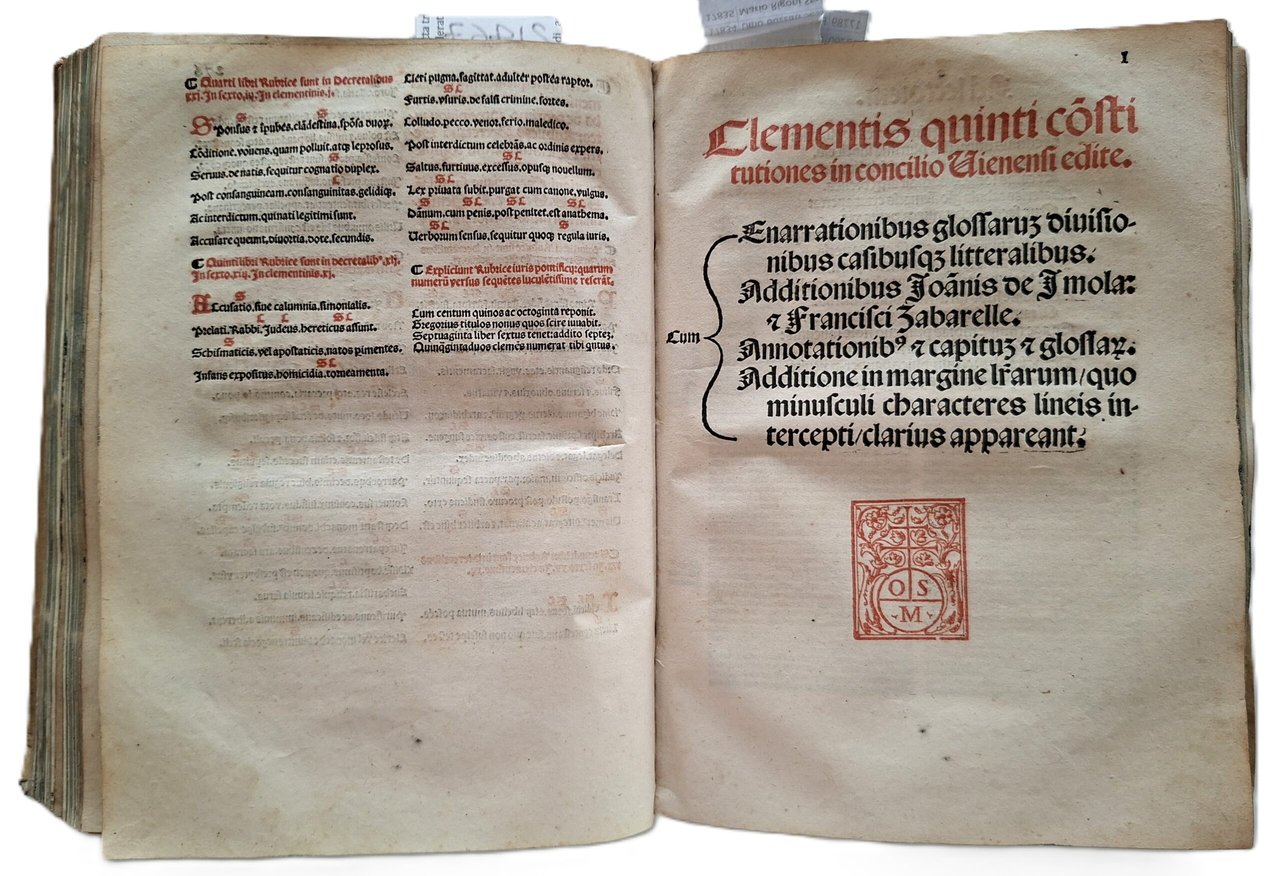 ¶ Quarti libri Rubrice sunt in Decretalibus
xxi. In sexto. iij. In clementinis. j.
S
SPonsus ⁊ ĩpubes. clãdestina. spõsa duoꝝ.
Cõditione. vouens. quam polluit. atqꝫ leprosus.
S
Seruus. de natis. sequitur cognatio duplex.
L
Post consanguineam. consanguinitas. gelidiqꝫ.
Ac interdictum. qui nati legitimi sunt.
Accusare queunt. diuortia. dote. secundis.
¶ Quinti libri Rubrice sunt in decretalibꝰ. xlj.
In sexto. xij. In clementinis. xj.
S
ACcusatio. siue calumnia. simonialis.
L L SL
Prelati. Rabbi. Judeus. hereticus assunt.
S
Schismaticis. vel apostaticis. natos pimentes.
SL
Infans expositus. homicidia. torneamenta.
Cleri pugna. sagittat. adulter postea raptor.
SL
Furtis. vsuris. de falsi crimine. sortes.
Colludo. pecco. venor. ferio. maledico.
Post interdictum celebrãs. ac ordinis expers.
SL
Saltus. furtiuus. excessus. opusqꝫ nouellum.
SL
Lex priuata subit. purgat cum canone. vulgus.
S SL SL SL
Dãnum. cum penis. post penitet. est anathema.
SL S
Uerborum sensus. sequitur quoqꝫ regula iuris.
¶ Expliciunt Rubrice iuris pontificij: quarum
numerũ versus sequẽtes luculẽtissime referãt.
Cum centum quinos ac octoginta reponit.
Gregorius titulos nonus quos scire iuuabit.
Septuaginta liber sextus tenet: addito septeꝫ.
Quinqꝫginta duos clemẽs numerat tibi qntus.
I
Clementis quinti cõsti
tutiones in concilio Uienensi edite.
Cum
Enarrationibus glossaruꝫ diuisio-
nibus casibusqꝫ litteralibus.
Additionibus Joãnis de Imola:
⁊ Francisci Zabarelle.
Annotationibꝰ ⁊ capituꝫ ⁊ glossaꝝ.
Additione in margine lr̃arum/quo
minusculi characteres lineis in-
tercepti/clarius appareant.
O S
M